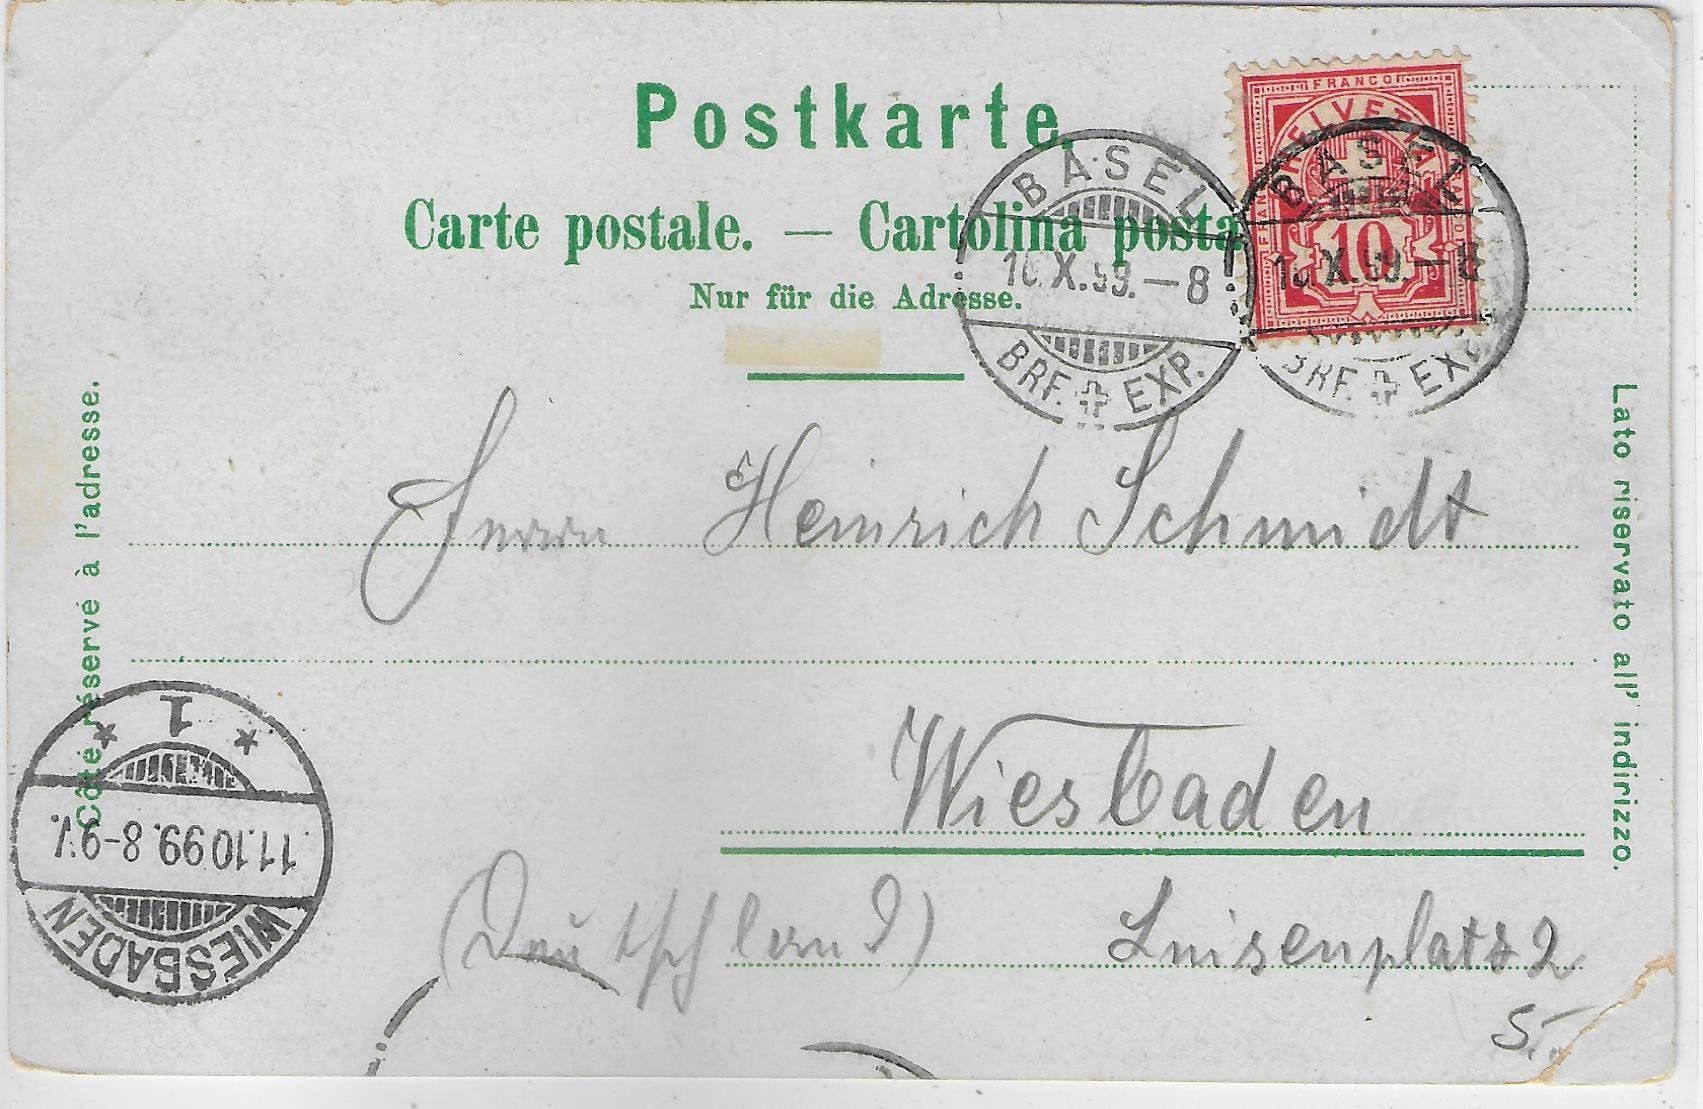 Postkarte.
Carte postale. — Cartolina posta
Nur für die Adresse.
FRANCO
HELVETIA
10
BASEL
10.X.99.—8
BRF. EXP.
BASEL
10.X.99.—8
BRF. EXP.
Côté réservé à l'adresse.
Lato riservato all' indirizzo.
Herrn Heinrich Schmidt
Wiesbaden
(Deutschland) Luisenplatz 2
1
11.10.99.8-9V.
WIESBADEN